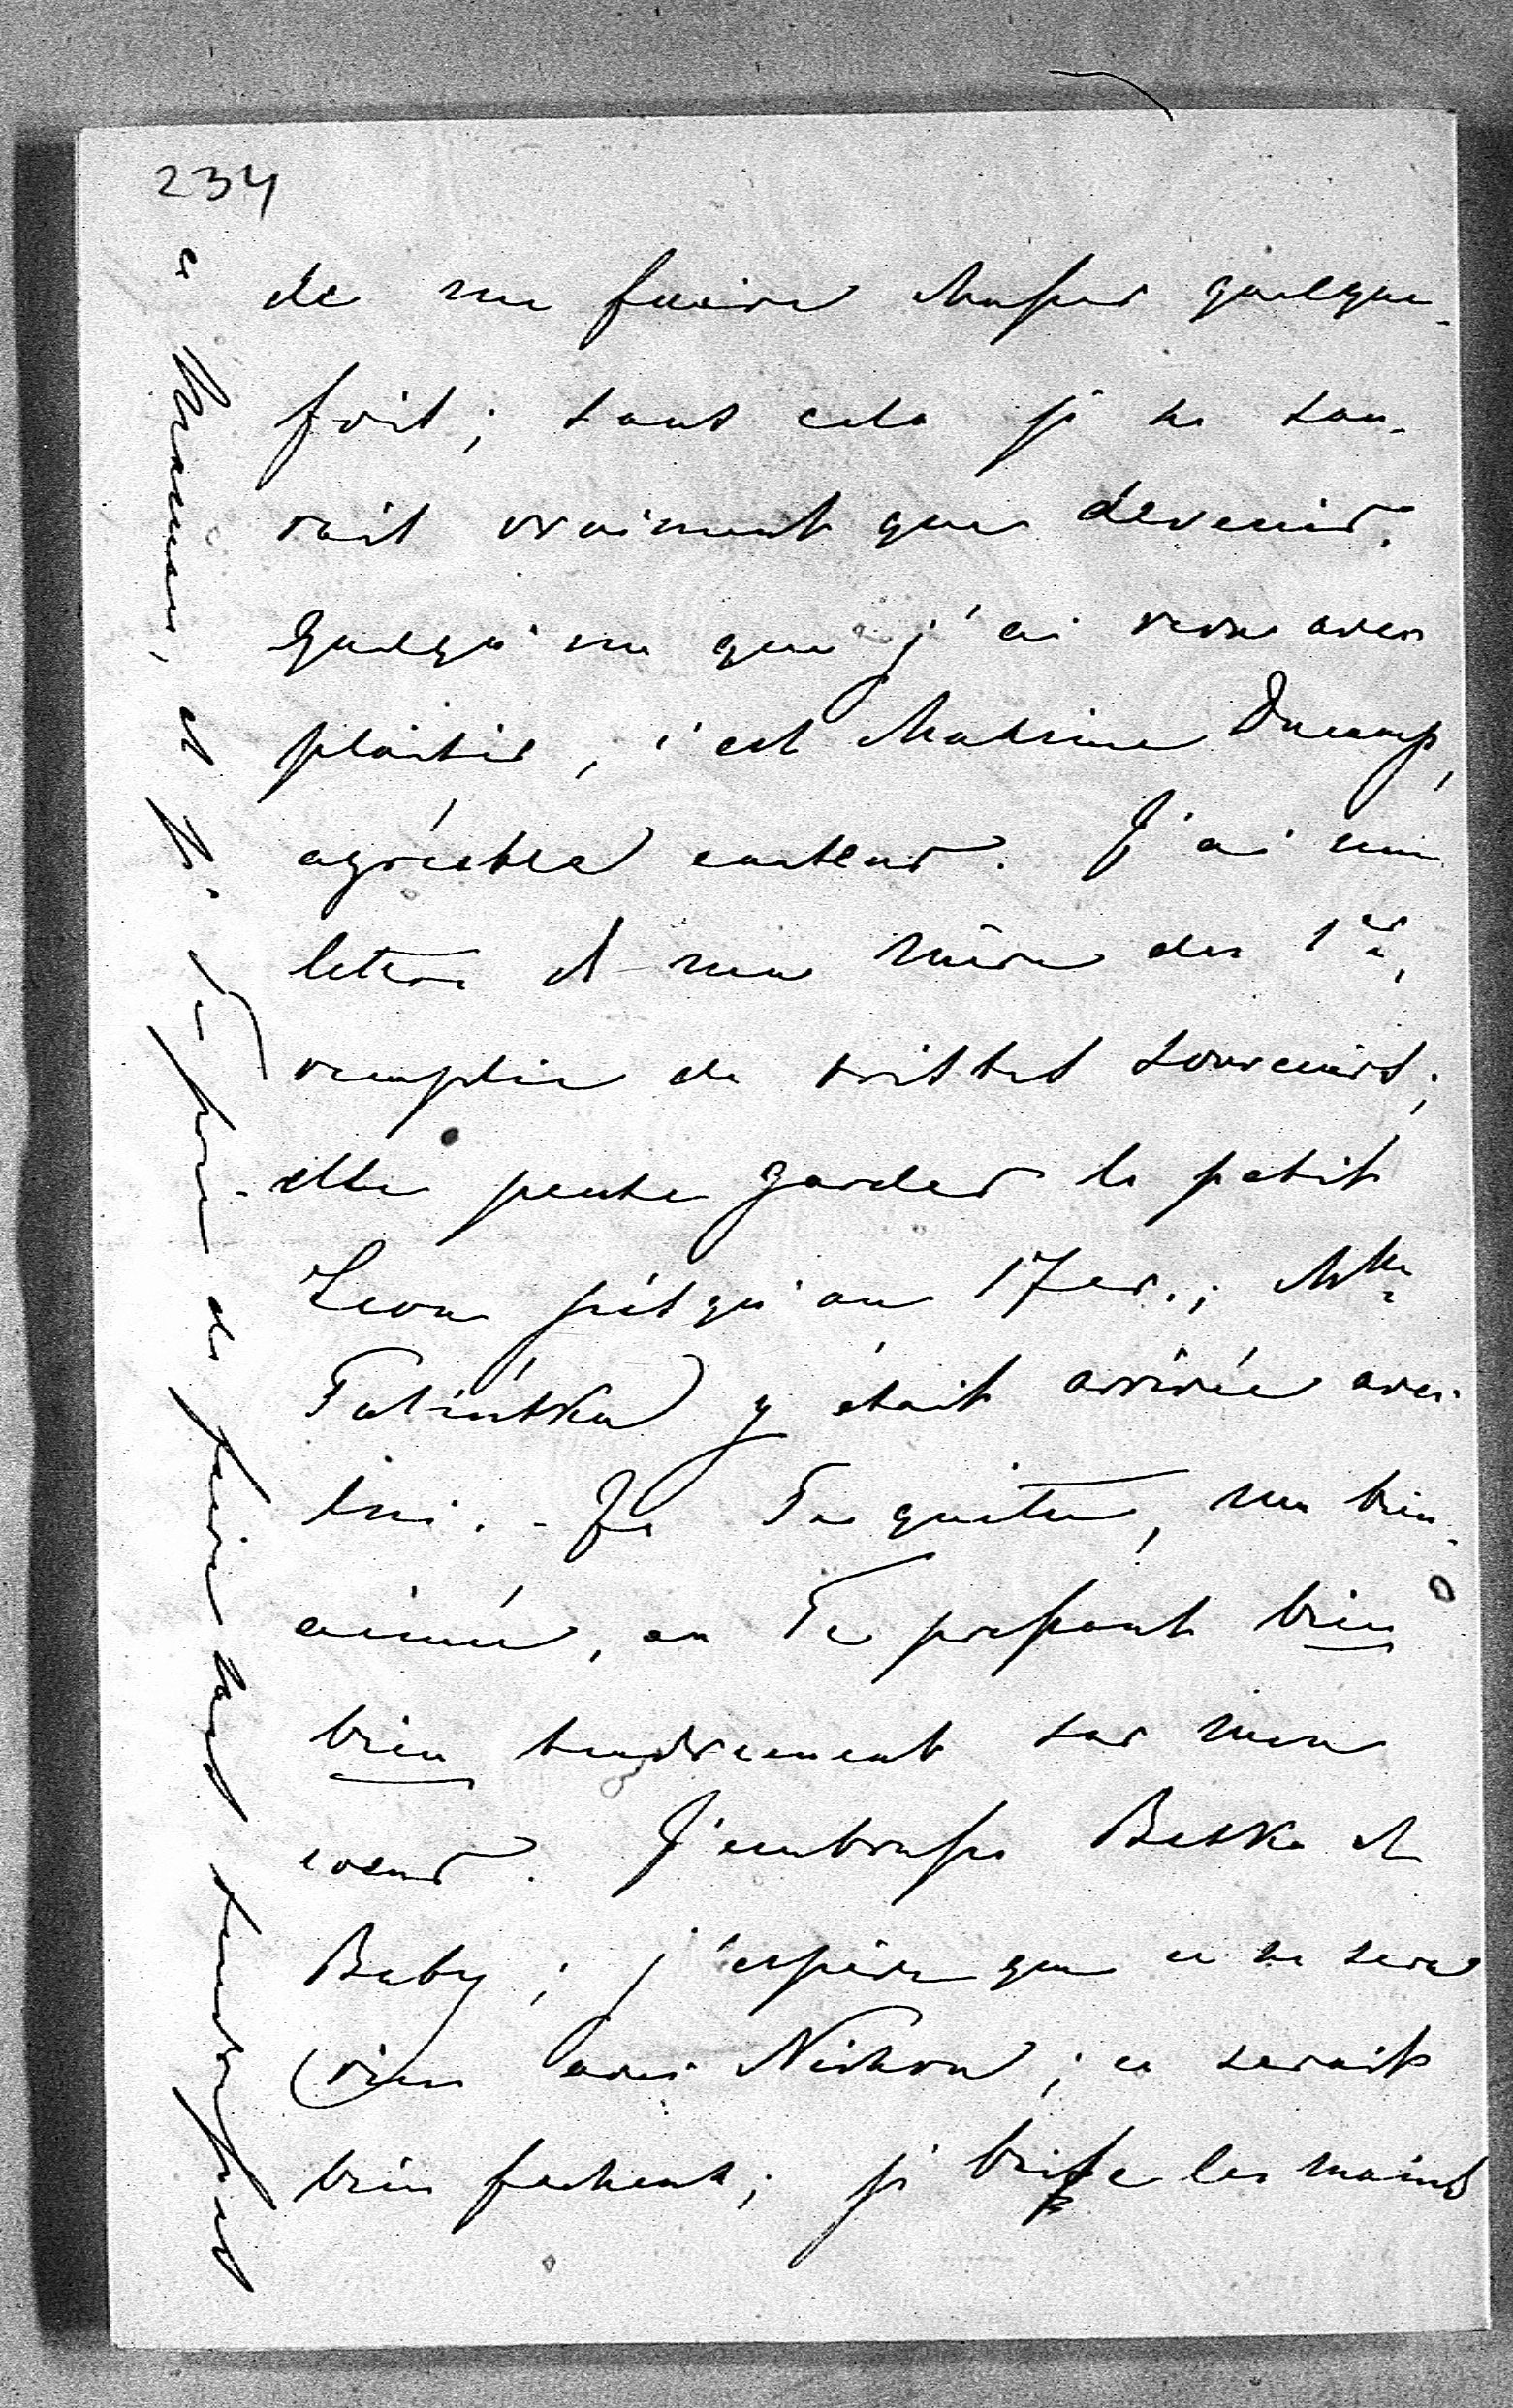 234
de me faire chasser quelque-
fois; sans cela je ne sau-
rais vraiment que devenir.
Quelqu'un que j'ai revu avec
plaisir, c'est Maxime Ducamp,
agréable conteur. J'ai une
lettre d ma mère du 1er,
remplie de tristes souvenirs;
elle pense garder le petit
Leon jusqu'au 17 cr.; Mlle
y était arrivée avec
lui. - Je Te quitte, ma bien-
aimée, en Te pressant bien
bien tendrement sur mon
coeur. J'embrasse Betka et
Baby; j'espère que ce ne sera
rien avec ; ce serait
bien facheux; je baise les mains
a Maman, et
Te prie de faire mes